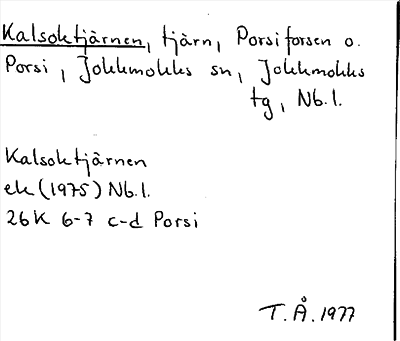 Kalsoktjärnen, tjärn, Porsiforsen o.
Porsi, Jokkmokks sn, Jokkmokks
tg, Nb.l.
Kalsoktjärnen
ek (1975) Nb.l.
26K 6-7 c-d Porsi
T.Å. 1977